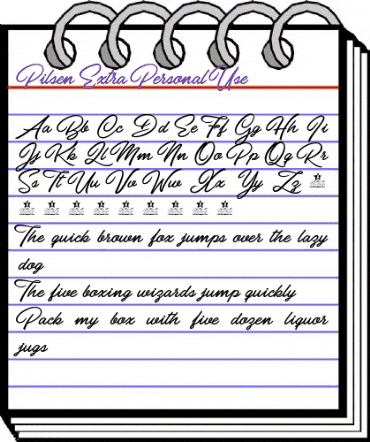 Pilsen Extra Personal Use
Aa Bb Cc Dd Ee Ff Gg Hh Ii
Jj Kk Ll Mm Nn Oo Pp Qq Rr
Ss Tt Uu Vv Ww Xx Yy Zz
The quick brown fox jumps over the lazy
dog
The five boxing wizards jump quickly
Pack my box with five dozen liquor
jugs